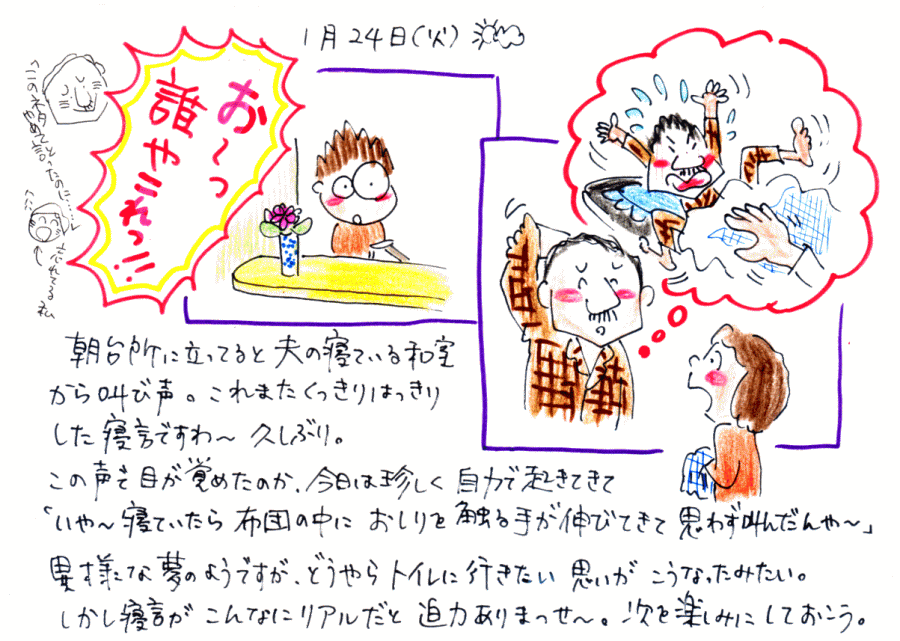 1月24日(火)
お〜っ
誰やこれっ!!
このネタやめて
と言ったのに……
忘れてる 私
朝台所に立ってると夫の寝ている和室
から叫び声。これまたくっきりはっきり
した寝言ですわ〜 久しぶり。
この声で目が覚めたのか、今日は珍しく自力で起きてきて
「いや〜寝ていたら布団の中におしりを触る手が伸びてきて思わず叫んだんや〜」
異様な夢のようですが、どうやらトイレに行きたい思いがこうなったみたい。
しかし寝言がこんなにリアルだと迫力ありまっせ〜。次を楽しみにしておこう。